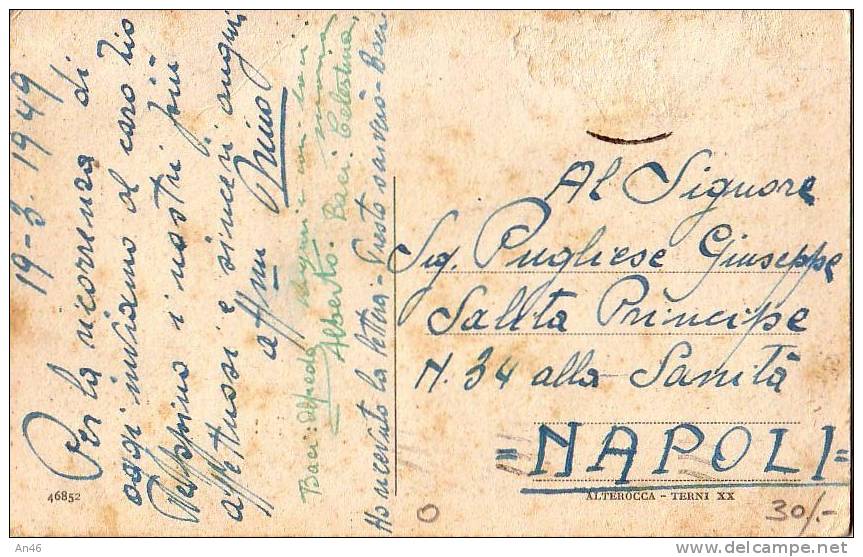 19-3.1949
Per la ricorrenza di
oggi inviamo al caro zio
Peppino i nostri più
affettuosi e sinceri auguri
aff.mi Nino
Baci: Alfredo auguri e cari baci
Alberto. Baci Celestina,
Ho ricevuto la lettera - Presto scriverò - Baci
Al Signore
Sig. Pugliese Giuseppe
Salita Principe
N. 34 alla Sanità
=NAPOLI=
46852
ALTEROCCA - TERNI XX
30/-
An46
delcampe.net